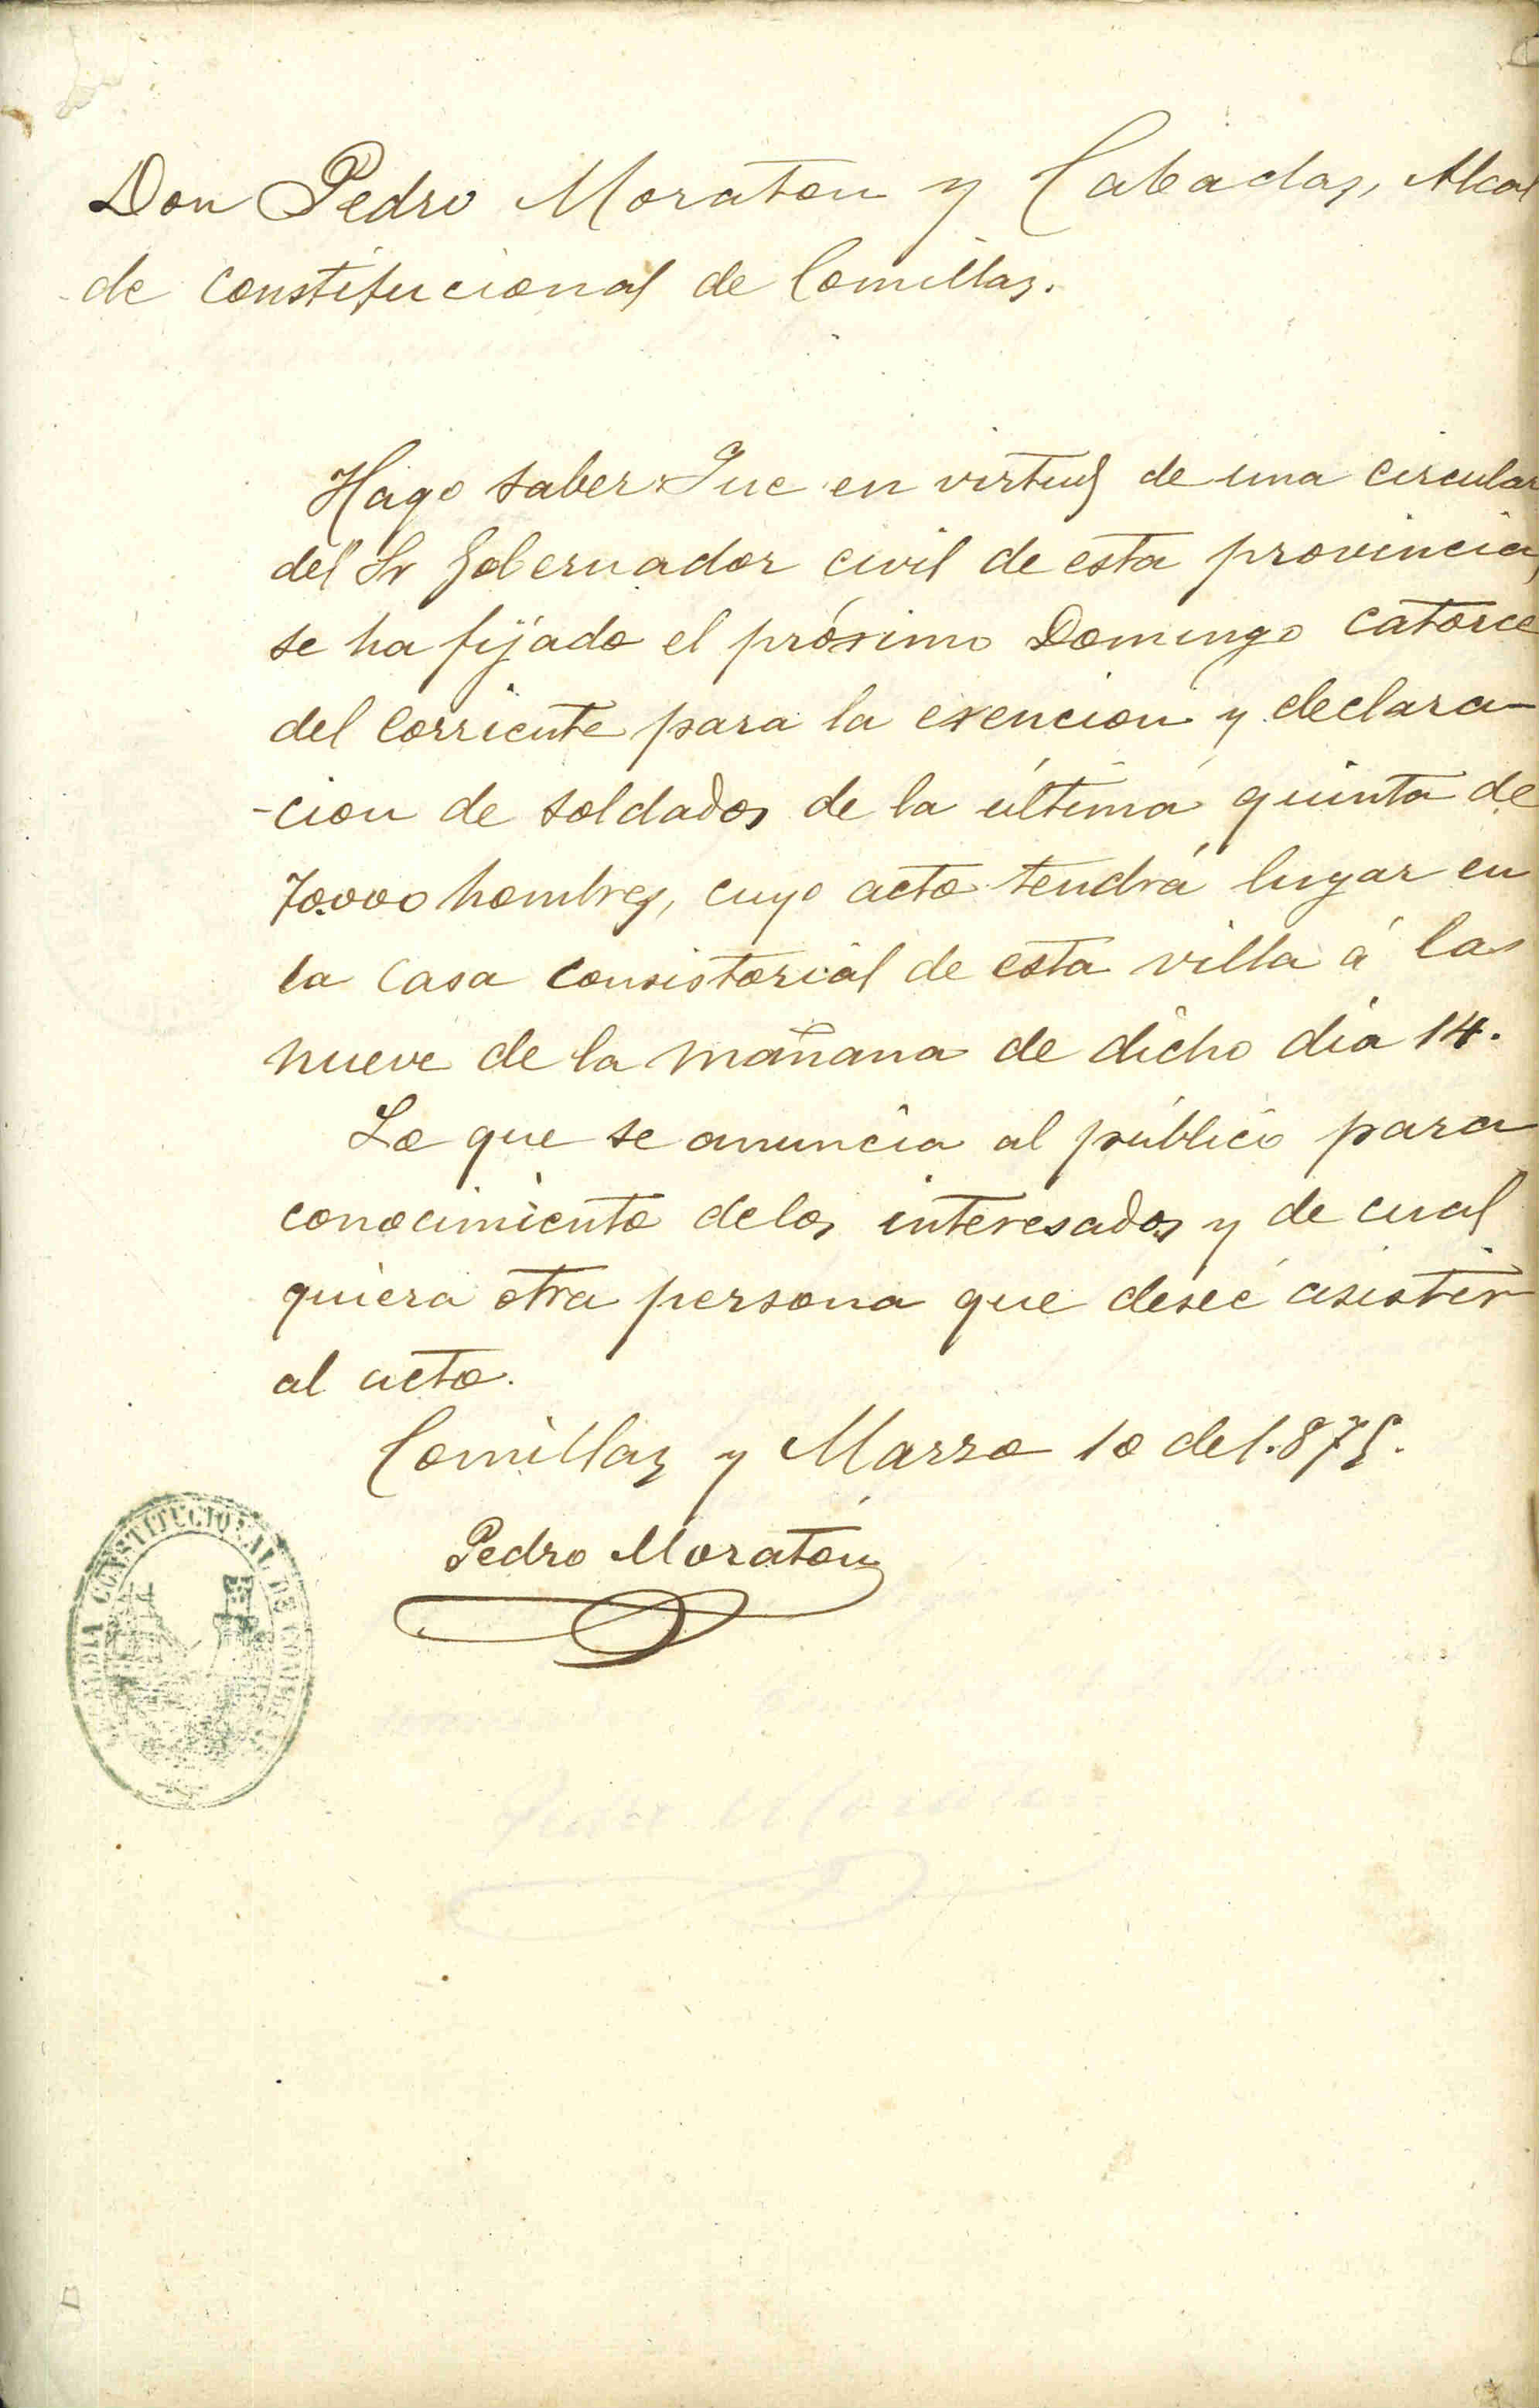 Don Pedro Moraton y Cabadas, Alcal
de constitucional de Comillas.
Hago saber: Que en virtud de una circular
del Sr Gobernador civil de esta provincia,
se ha fijado el próximo Domingo catorce
del corriente para la exencion y declara-
-cion de soldados de la última quinta de
70.000 hombres, cuyo acto tendrá lugar en
la casa consistorial de esta villa á las
nueve de la mañana de dicho dia 14.
Lo que se anuncia al público para
conocimiento de los interesados y de cual
quiera otra persona que deseé asistir
al acto.
Comillas y Marzo 10 de 1.875.
Pedro Moratón
ALCALDIA CONSTITUCIONAL DE COMILLAS